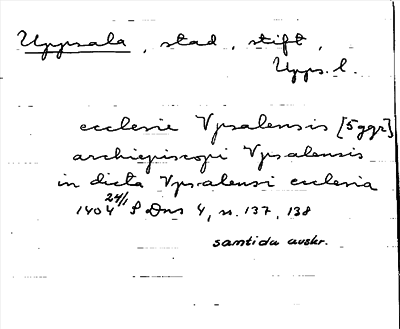 Uppsala, stad, stift,
Upps. l.
ecclesie Vpsalensis [5 ggr]
archiepiscopi Vpsalensis
in dicta Vpsalensi ecclesia
1404 24/1 S Dns 4, n. 137, 138
samtida avskr.